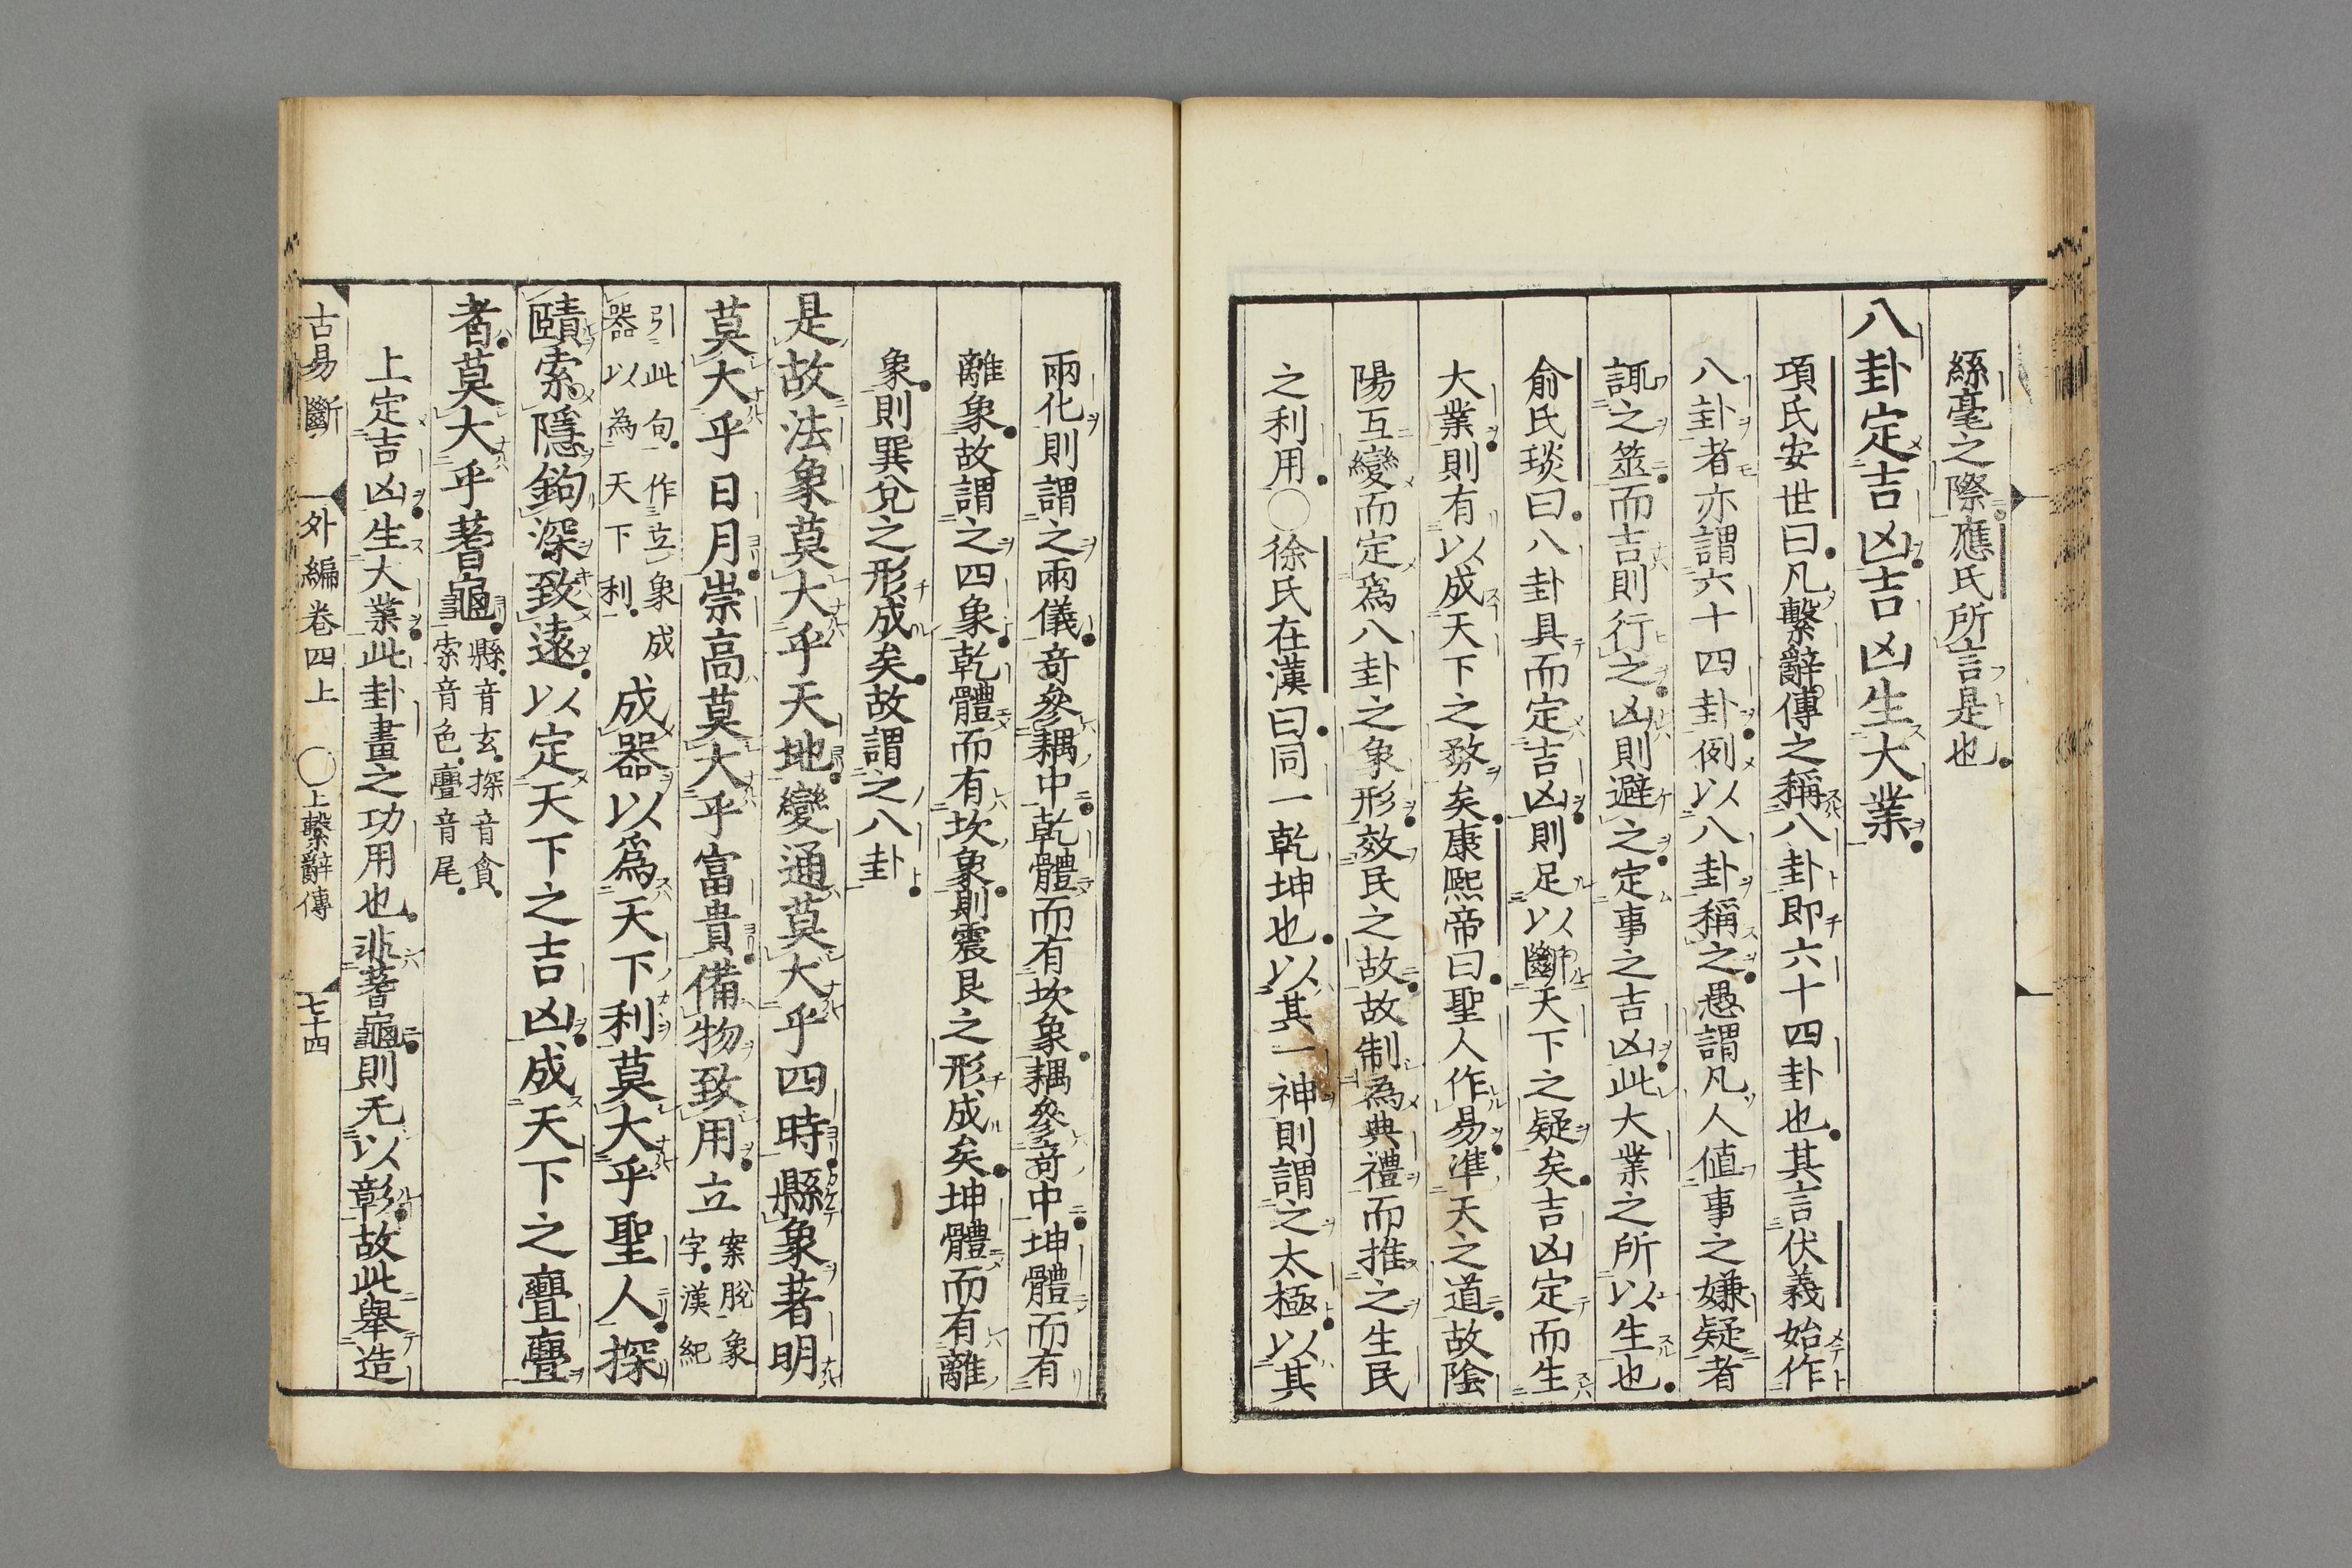 絲毫之際應氏所言是也
八卦定吉凶吉凶生大業
項氏安世曰凡繫辭傳之稱八卦即六十四卦也其言伏義始作
八卦者亦謂六十四卦例以八卦稱之愚謂凡人値事之嫌疑者
諏之筮而吉則行之凶則避之定事之吉凶此大業之所以生也
俞氏琰曰八卦具而定吉凶則足以斷天下之疑矣吉凶定而生
大業則有以成天下之務矣康熙帝曰聖人作易準天之道故陰
陽互變而定爲八卦之象形效民之故故制為典禮而推之生民
之利用○徐氏在漢曰同一乾坤也以其一神則謂之太極以其
兩化則謂之兩儀奇參耦中乾體而有坎象耦參奇中坤體而有
離象故謂之四象乾體而有坎象則震艮之形成矣坤體而有離
象則巽兌之形成矣故謂之八卦
是故法象莫大乎天地變通莫大乎四時縣象著明
莫大乎日月崇高莫大乎富貴備物致用立案脫象
字漢紀
引此句作立象成
器以為天下利成器以爲天下利莫大乎聖人探
賾索隱鉤深致遠以定天下之吉凶成天下之亹亹
者莫大乎蓍龜縣音玄探音貪
索音色亹音尾
上定吉凶生大業此卦畫之功用也非蓍龜則无以彰故此舉造
古易斷 外編卷四上 ○上繫辭傳 七十四